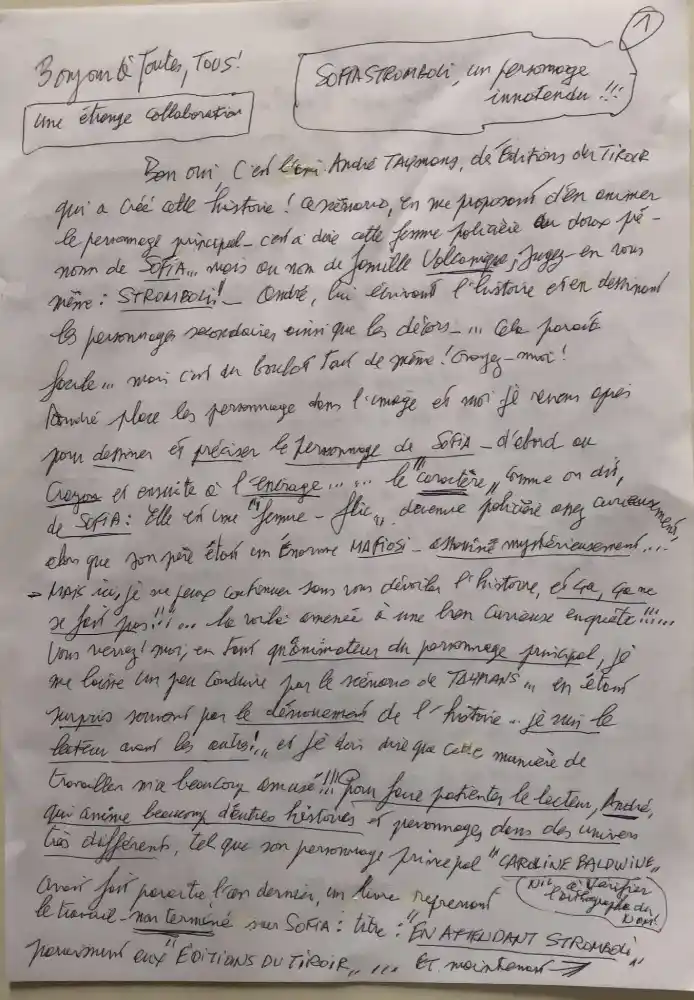 1
Bonjour à Toutes, Tous!
une étrange collaboration
SOFIA STROMBOLI, un personnage
innatendu !!!
Ben oui, C'est l'ami André TAYMANS, de Éditions du TIROIR
qui a créé cette histoire ! Ce scénario, en me proposant d'en animer
le personnage principal – c'est à dire cette femme policière au doux pré-
nom de SOFIA... mais au nom de famille Volcanique, Jugez-en vous
même : STROMBOLI! – André, lui écrivant l'histoire et en dessinant
les personnages secondaires ainsi que les décors – ... Cela paraît
facile... mais c'est du boulot tout de même ! Croyez-moi !
André place les personnage dans l'image et moi je reviens après
pour dessiner et préciser le personnage de SOFIA – d'abord au
Crayon et ensuite à l'encrage... ... le "caractère", comme on dit,
de SOFIA : Elle est une "femme-flic", devenue policière assez curieusement,
alors que son père était un Énorme MAFIOSI – assassiné mystérieusement...
→ Mais ici, je ne peux continuer sans vous dévoiler l'histoire, et ça, ça ne
se fait pas !!! ... la voilà amenée à une bien curieuse enquête !!!...
Vous verrez ! moi, en tant qu'animateur du personnage principal, je
me laisse un peu conduire par le scénario de TAYMANS... en étant
surpris souvent par le dénouement de l'histoire... je suis le
lecteur avant les autres!,, et je dois dire que cette manière de
travailler m'a beaucoup amusé !!! Pour faire patienter le lecteur, André,
qui anime beaucoup d'autres histoires et personnages dans des univers
très différents, tel que son personnage principal "CAROLINE BALDWINE,,
avait fait paraître l'an dernier, un livre reprenant
à Vérifier
l'orthographe du
Nom!
le travail – non terminé sur SOFIA : titre : "EN ATTENDANT STROMBOLI,,
paru aux "EDITIONS DU TIROIR,, ... Et maintenant →